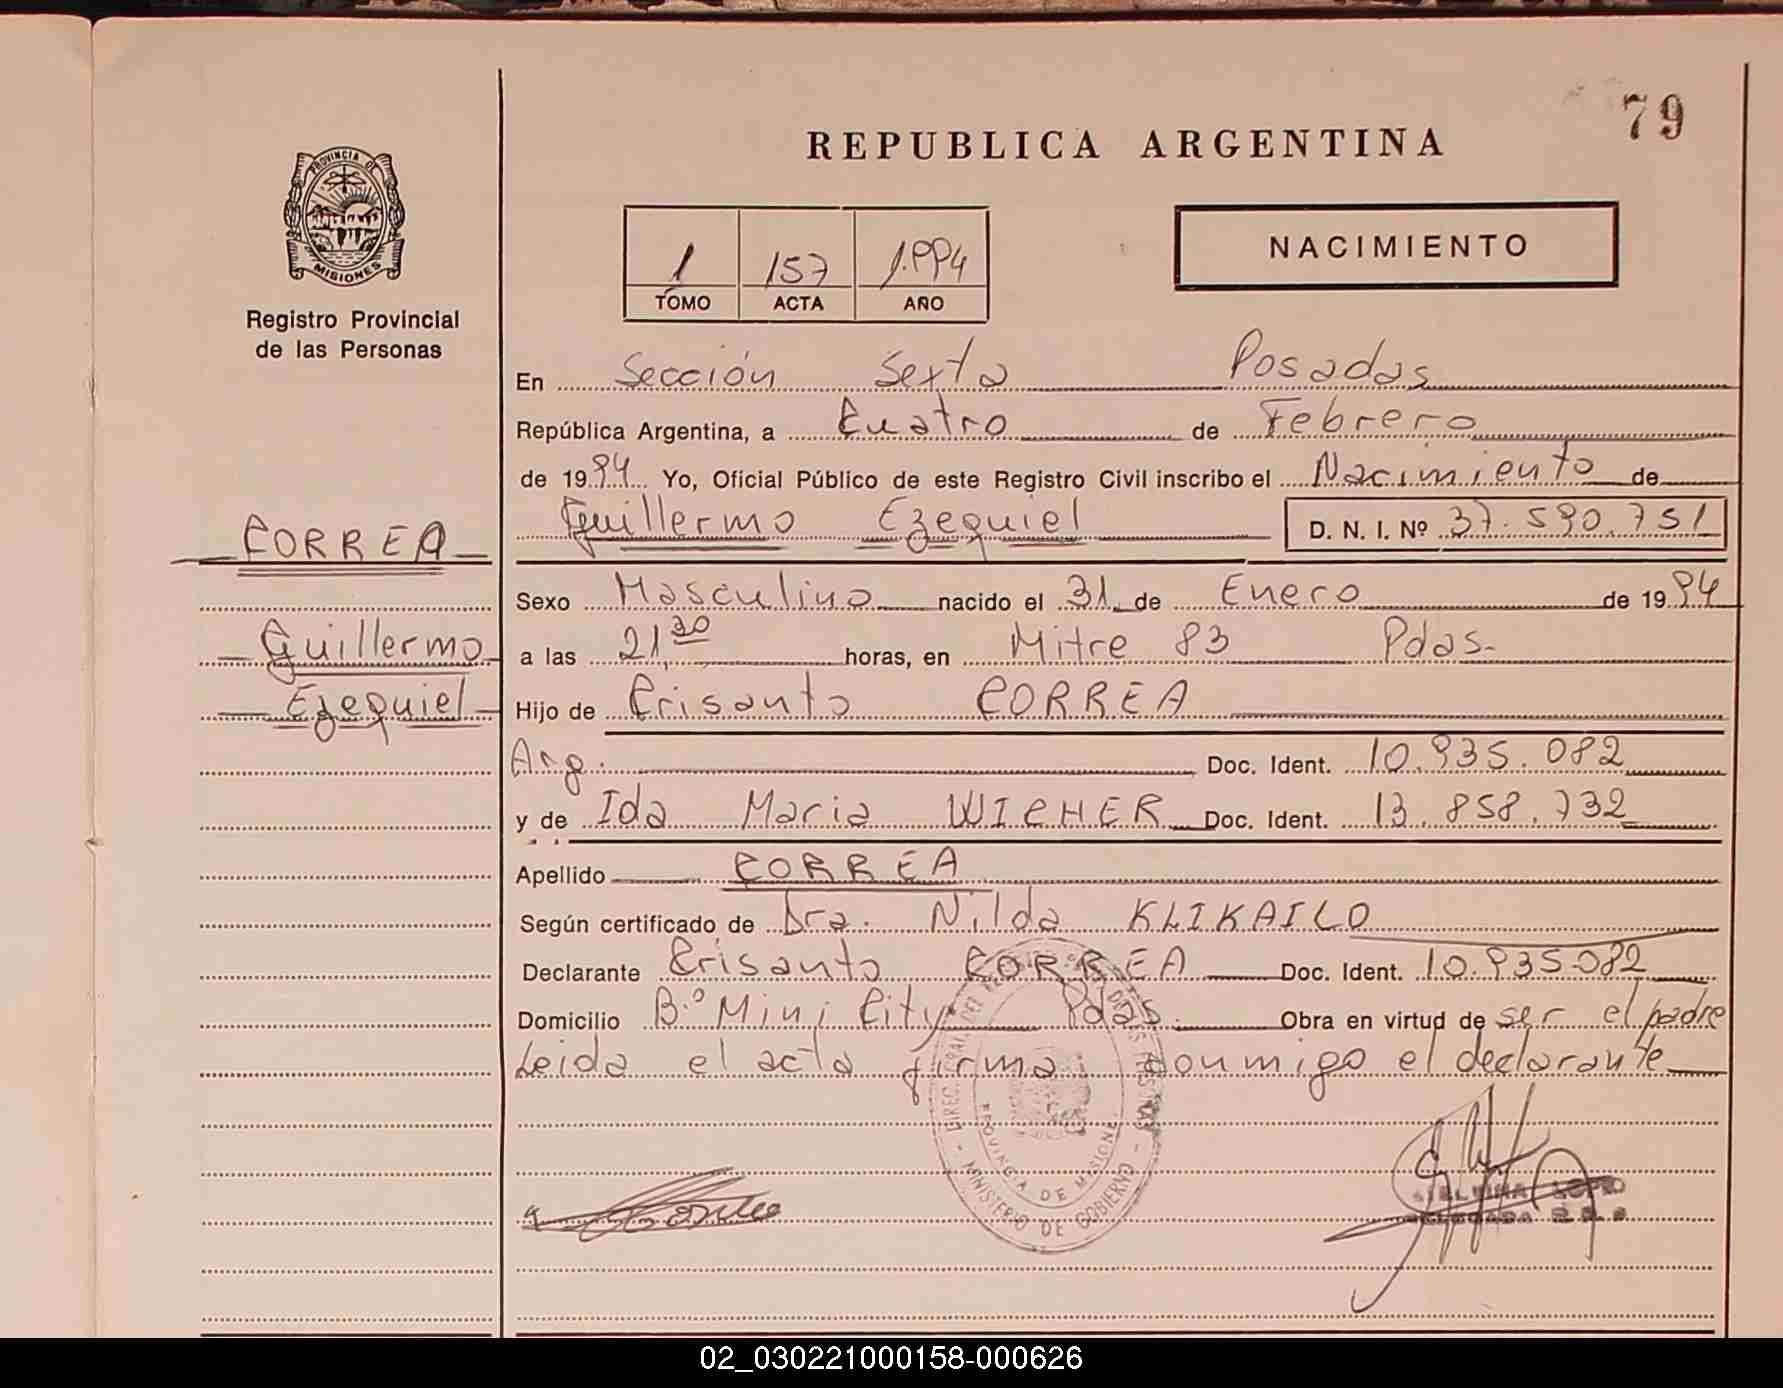 79
REPUBLICA ARGENTINA
PROVINCIA DE
MISIONES
Registro Provincial
de las Personas
1 157 1.994
TOMO ACTA AÑO
NACIMIENTO
En Sección Sexta Posadas
República Argentina, a Cuatro de Febrero
de 1994 Yo, Oficial Público de este Registro Civil inscribo el Nacimiento de
Guillermo Ezequiel D. N. I. Nº 37.590.751
CORREA
Sexo Masculino nacido el 31 de Enero de 1994
Guillermo
a las 21,30 horas, en Mitre 83 Pdas.
Ezequiel
Hijo de Crisanto CORREA
Arg. Doc. Ident. 10.935.082
y de Ida Maria WICHER Doc. Ident. 13.858.732
Apellido CORREA
Según certificado de Dra. Nilda KLIKAILO
Declarante Crisanto CORREA Doc. Ident. 10.935.082
Domicilio B.º Mini City Pdas. Obra en virtud de ser el padre
Leida el acta firma conmigo el declarante
PROVINCIA DE MISIONES
MINISTERIO DE GOBIERNO
02_030221000158-000626